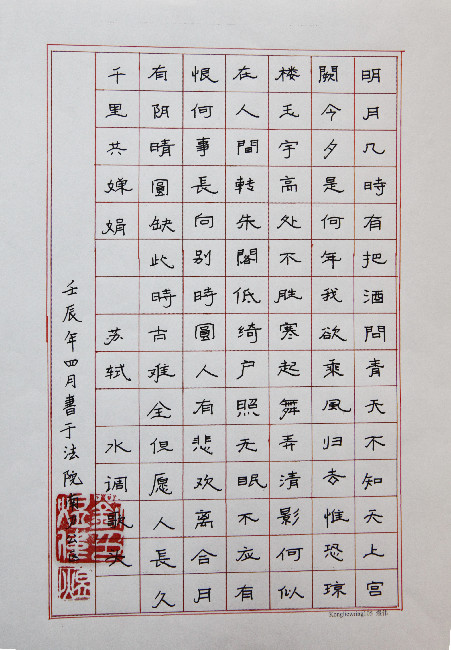 明月几時有把酒問青天不知天上宮
闕今夕是何年我欲乘風归去惟恐琼
楼玉宇高处不胜寒起舞弄清影何似
在人間转朱閣低绮户照无眠不应有
恨何事長向别時圓人有悲欢离合月
有阴晴圓缺此時古难全但愿人長久
千里共婵娟 苏轼 水调歌头
壬辰年四月書于法院